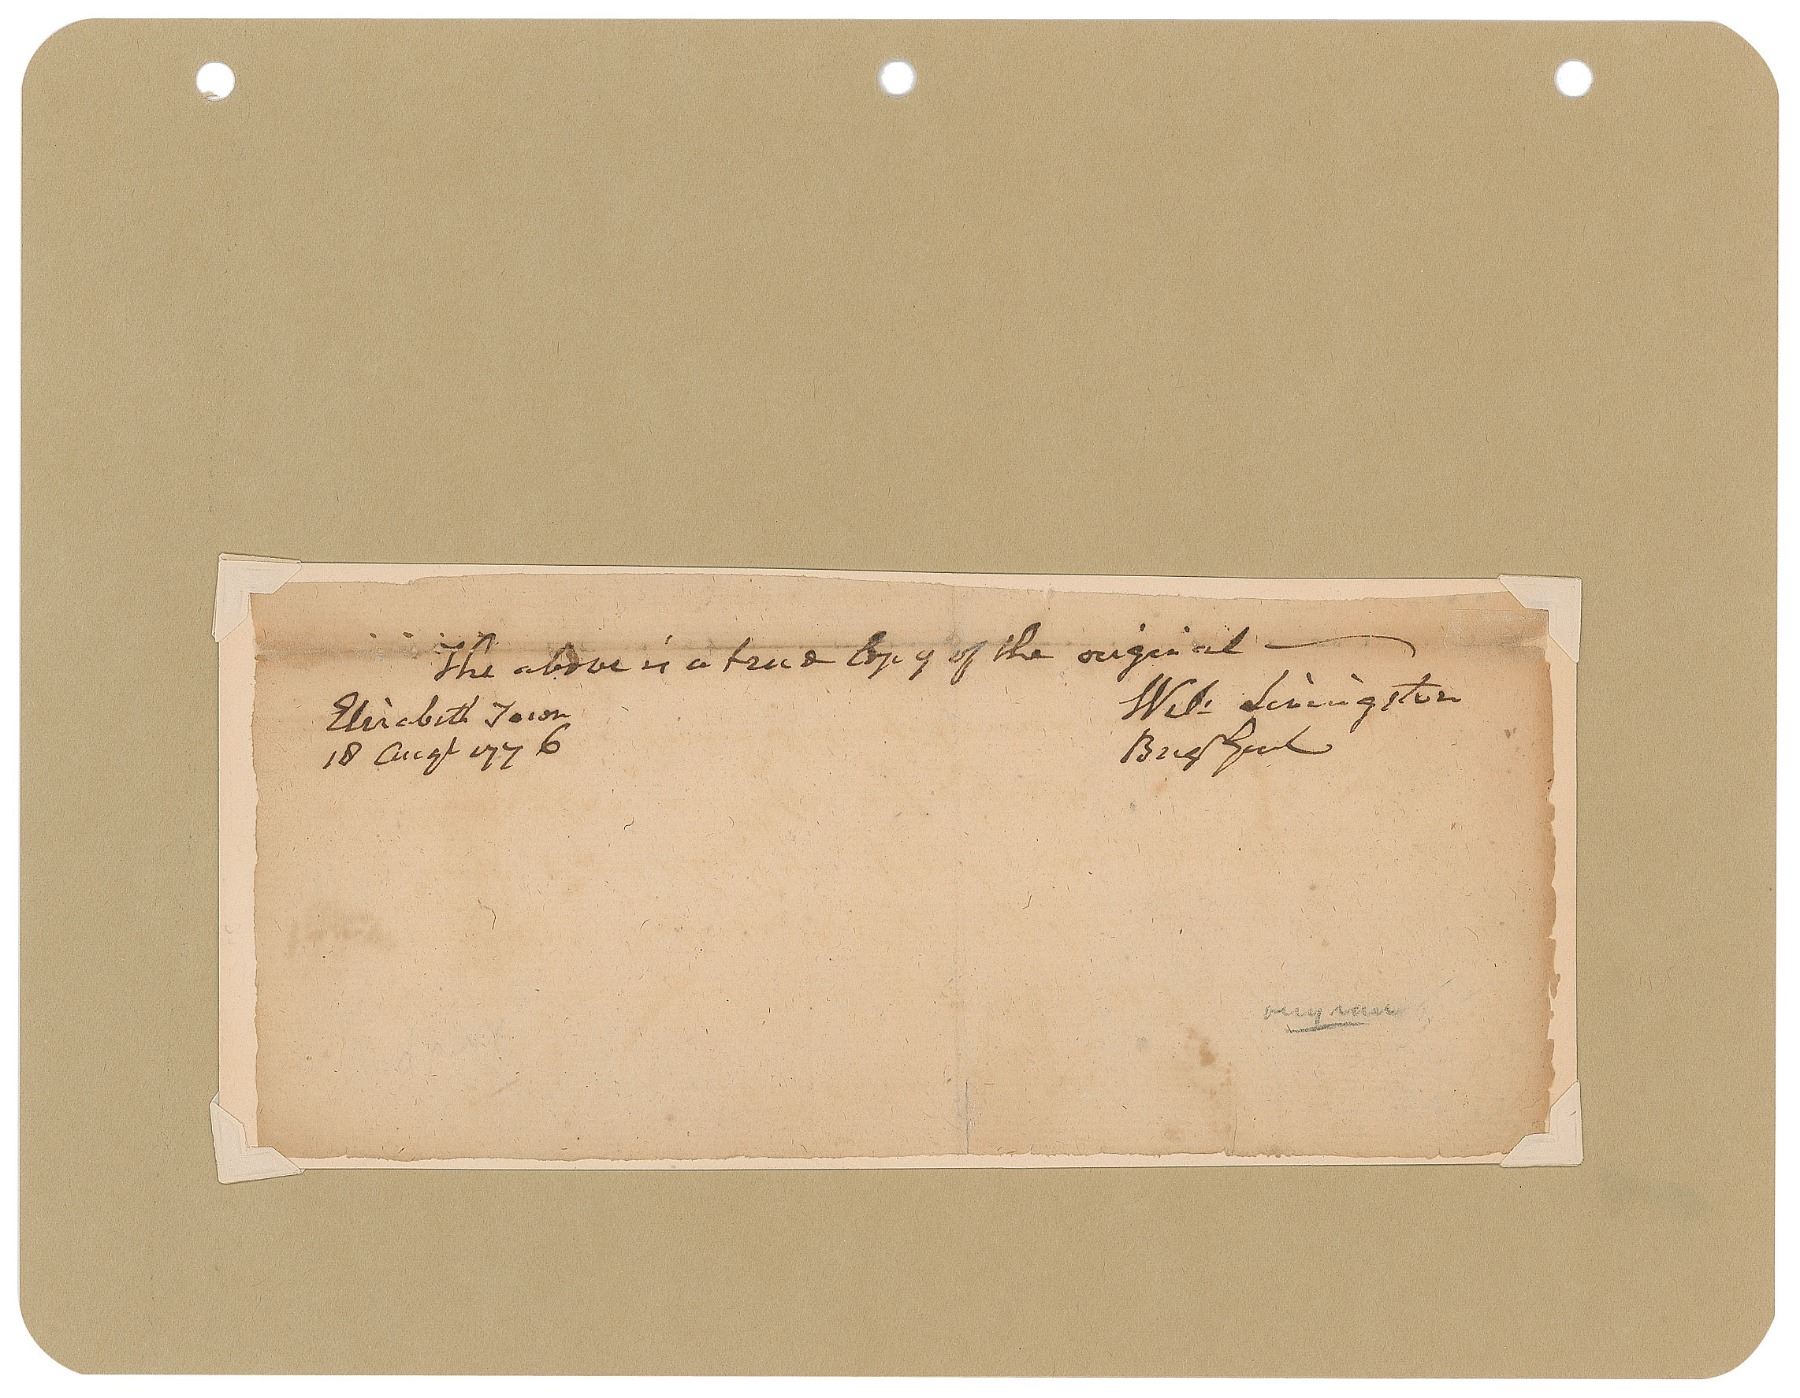 The above is a true Copy of the original
Elizabeth Town
18 Augt 1776
Wil: Livingston
Brig Genl
very rare